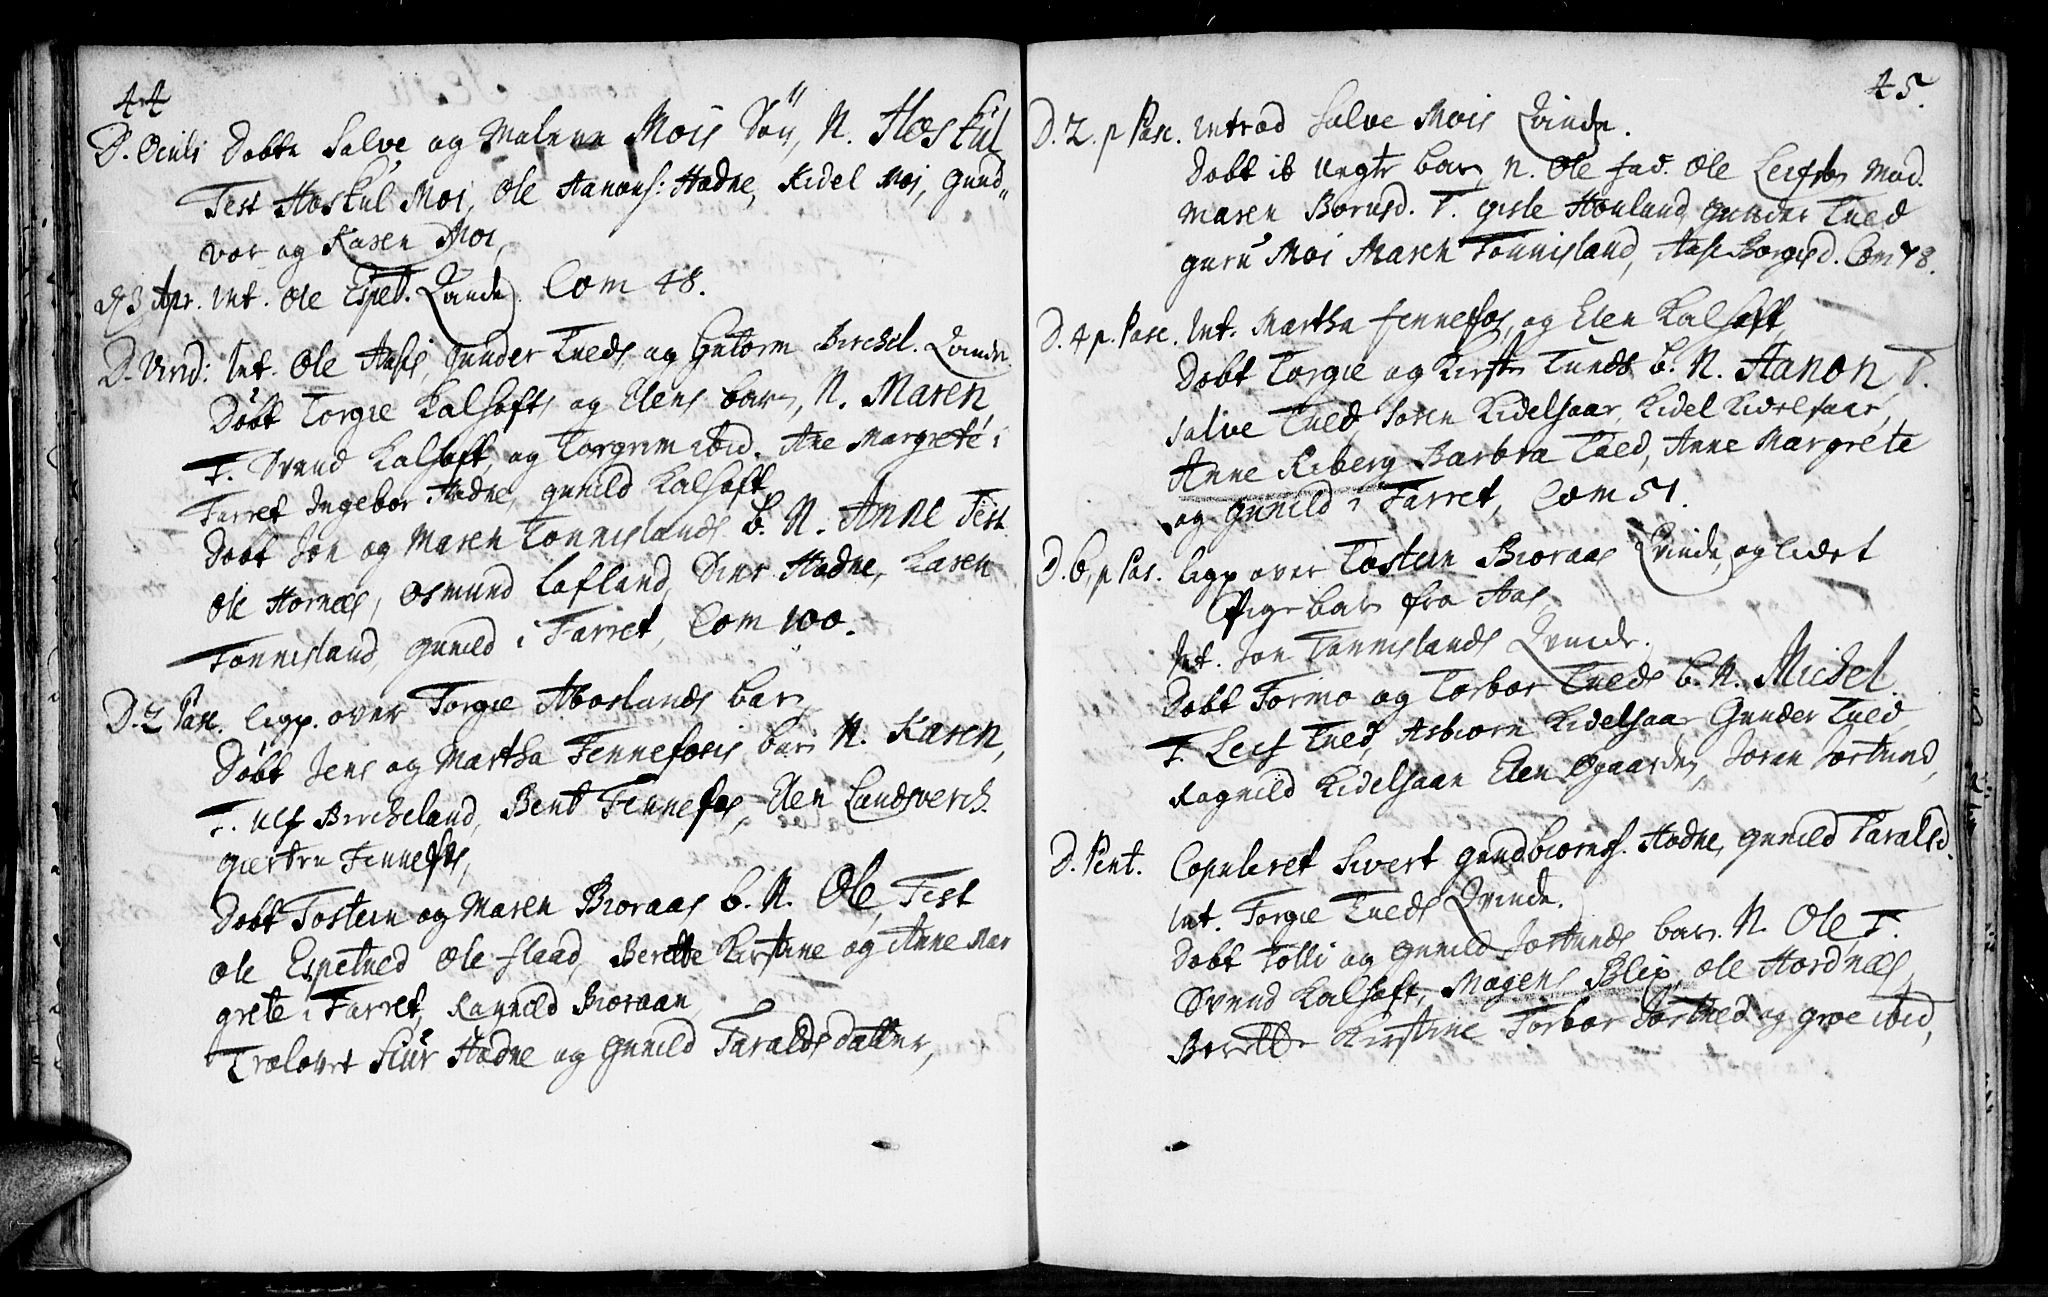 44
D. Oculi Døbte Salve og Malene Mois Søn, N. Høskul
Test Høskul Moi, Ole Aanons: Hodne, Kidel Moi, Gund„
vor og Karen Moi,
d. 3 Apr. Int. Ole Espet. Qvinde. Com 48.
D. Virid: Int. Ole Aasis, Gunder Tueds og Gutorm Birchel. Qvinde
Døbt Torgie Kalhofts og Elens barn, N. Maren,
T. Svend Kalhoft, og Torgrim ibid. Ane Margrete i
Farret Ingebor Hodne, Gunild Kalhoft
Døbt Jon og Maren Tonnislands B. N. Anne Test.
Ole Hornes, Osmund Lofland, Hodne, Karen
Tonnisland, Gunild i Farret, Com 100.
D. 2 Pasc. ligp. over Torgie Aboslands barn
Døbt Jens og Martha Fennefosis barn N. Karen,
T. Ulf Bircheland, Bent Fennefos, Elen Landsverch.
Giertru Fennefos,
Døbt Tosten og Maren Bioraas b. N. Ole, Test
Ole Espetued Ole flaad, Berette Kirstine og Anne Mar
grete i Farret, Ragnild Bioraan
Trolovet Siur Hodne og Gunild Taraldsdatter,
45.
D. 2. p Pasc. Introd Salve Mois Qvinde.
Døbt it Uegte barn N. Ole fad. Ole Leifs Mod.
Maren Bornsd. T. Gisle Honland, Gunder Tued
Guru Moi Maren Tonnisland, Com 78.
D. 4 p. Pasc. Int. Martha Fennefos, og Elen Kalhoft
Døbt Torgie og Kirste Tueds b. N. Aanon, T.
Salve Tued Soren Kidelsaar, Kidel Kidelsaar,
Anne Riberg Barbra Tued, Anne Margrete
og Gunild i Farret, Com 51.
D. 6, p Pas. ligp over Tosten Bioraas Qvinde, og lidet
Pige barn fra Aas,
Int. Jon Tonnislands Qvinde.
Døbt Tormo og Torbor Tueds b. N. Michel.
T. Leif Tued, Asbiorn Kidelsaar Gunder Tued
Ragnild Kidelsaan Elen Øgaarden, Joran Jortued,
D. Pent. Copuleret Sivert Gundbiorns. Hodne, Gunild Taralsd.
Int. Torgie Tueds Qvinde.
Døbt Tolli og Gunild Jortueds barn. N. Ole, T.
Svend Kalhoft, Mogens Blix, Ole Hordnes,
Berette Kirstine Torbor Jortued og Groe ibid,